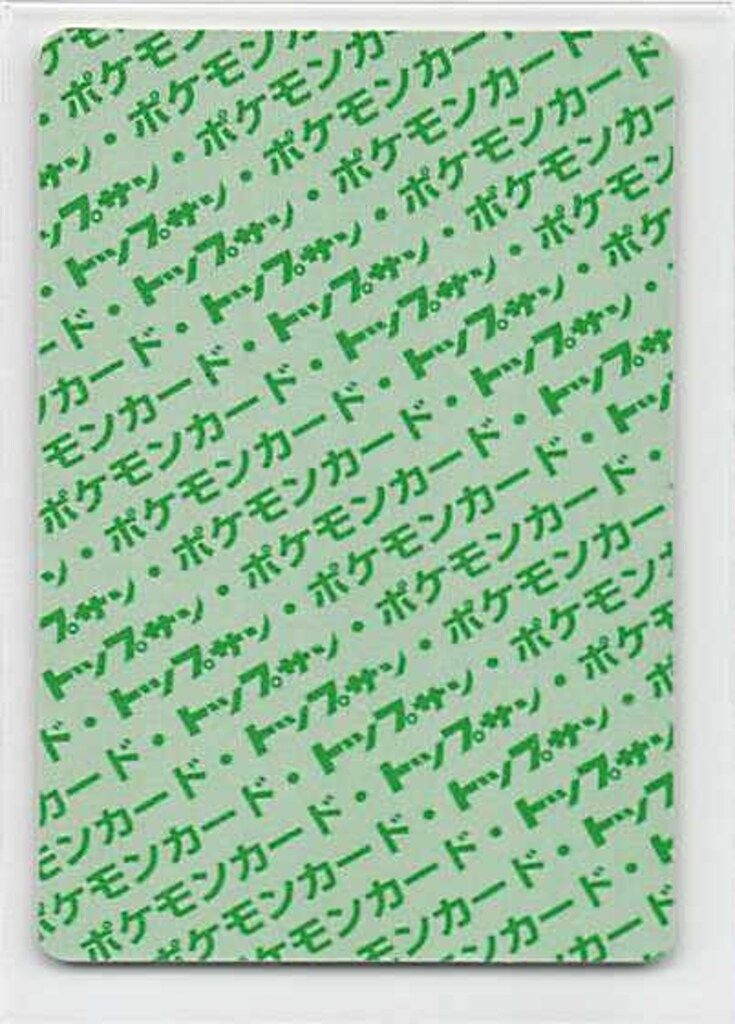 ケモ
・ポケモン
サン・ポケモンカ
ップサン・ポケモンカー
・トップサン・ポケモンカード
ード・トップサン・ポケモンカード
ンカード・トップサン・ポケモンカード
モンカード・トップサン・ポケモンカー
ポケモンカード・トップサン・ポケモン
ン・ポケモンカード・トップサン・ポケ
プサン・ポケモンカード・トップサン・
トップサン・ポケモンカード・トップサ
ド・トップサン・ポケモンカード・トッ
カード・トップサン・ポケモンカード・
モンカード・トップサン・ポケモンカー
ポケモンカード・トップサン・ポケモン
ポケモンカード・トップサン・ポケモ
ポケモンカード・トップサン・ポ
ケモンカード・トップサン
モンカード・トップ
ンカード・ト
カード